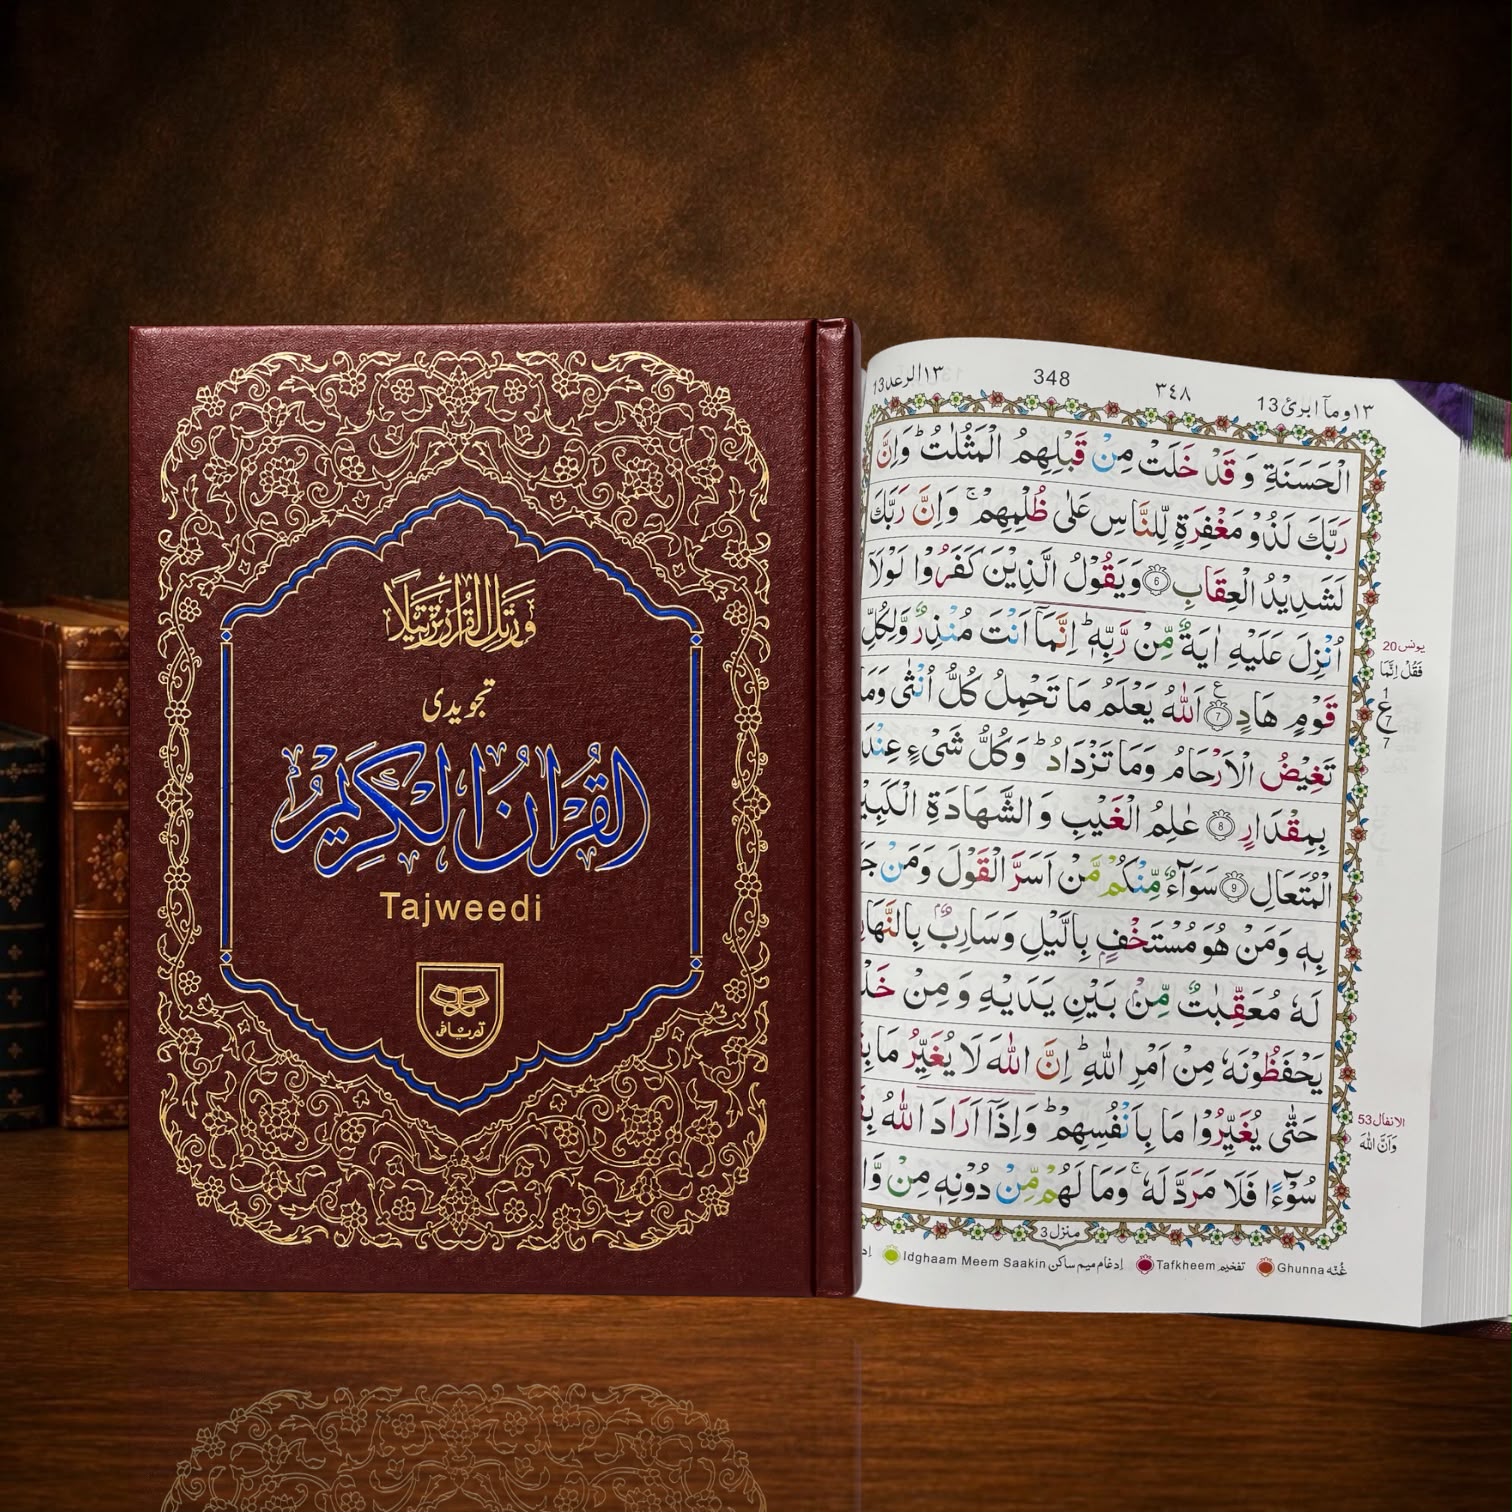 ورتل القرآن ترتيلا
تجویدی
القُرْاٰنُ الْكَرِيْمُ
Tajweedi
الرعد١٣ 13
348
٣٤٨
ومآ ابرئ١٣ 13
الْحَسَنَةِ وَقَدْ خَلَتْ مِنْ قَبْلِهِمُ الْمَثُلٰتُ ؕ وَاِنَّ
رَبَّكَ لَذُوْ مَغْفِرَةٍ لِّلنَّاسِ عَلٰى ظُلْمِهِمْ ۚ وَاِنَّ رَبَّكَ
لَشَدِيْدُ الْعِقَابِ ۝6 وَيَقُوْلُ الَّذِيْنَ كَفَرُوْا لَوْلَاۤ
اُنْزِلَ عَلَيْهِ اٰيَةٌ مِّنْ رَّبِّهٖ ؕ اِنَّمَاۤ اَنْتَ مُنْذِرٌ وَّلِكُلِّ
قَوْمٍ هَادٍ ۝7 اَللّٰهُ يَعْلَمُ مَا تَحْمِلُ كُلُّ اُنْثٰى وَمَا
تَغِيْضُ الْاَرْحَامُ وَمَا تَزْدَادُ ؕ وَكُلُّ شَىْءٍ عِنْدَ
بِمِقْدَارٍ ۝8 عٰلِمُ الْغَيْبِ وَالشَّهَادَةِ الْكَبِيْ
الْمُتَعَالِ ۝9 سَوَآءٌ مِّنْكُمْ مَّنْ اَسَرَّ الْقَوْلَ وَمَنْ جَ
بِهٖ وَمَنْ هُوَ مُسْتَخْفٍ بِالَّيْلِ وَسَارِبٌ بِالنَّهَارِ
لَهٗ مُعَقِّبٰتٌ مِّنْ بَيْنِ يَدَيْهِ وَمِنْ خَلْ
يَحْفَظُوْنَهٗ مِنْ اَمْرِ اللّٰهِ ؕ اِنَّ اللّٰهَ لَا يُغَيِّرُ مَا بِقَ
حَتّٰى يُغَيِّرُوْا مَا بِاَنْفُسِهِمْ ؕ وَاِذَاۤ اَرَادَ اللّٰهُ بِقَ
سُوْٓءًا فَلَا مَرَدَّ لَهٗ ۚ وَمَا لَهُمْ مِّنْ دُوْنِهٖ مِنْ وَّا
یونس20
فَقُلْ اِنَّمَا
1
ع
7
7
الانفال53
وَاَنَّ اللّٰهَ
منزل3
Idghaam Meem Saakin إدغام ميم ساكن
Tafkheem تفخيم
Ghunna غُنّه